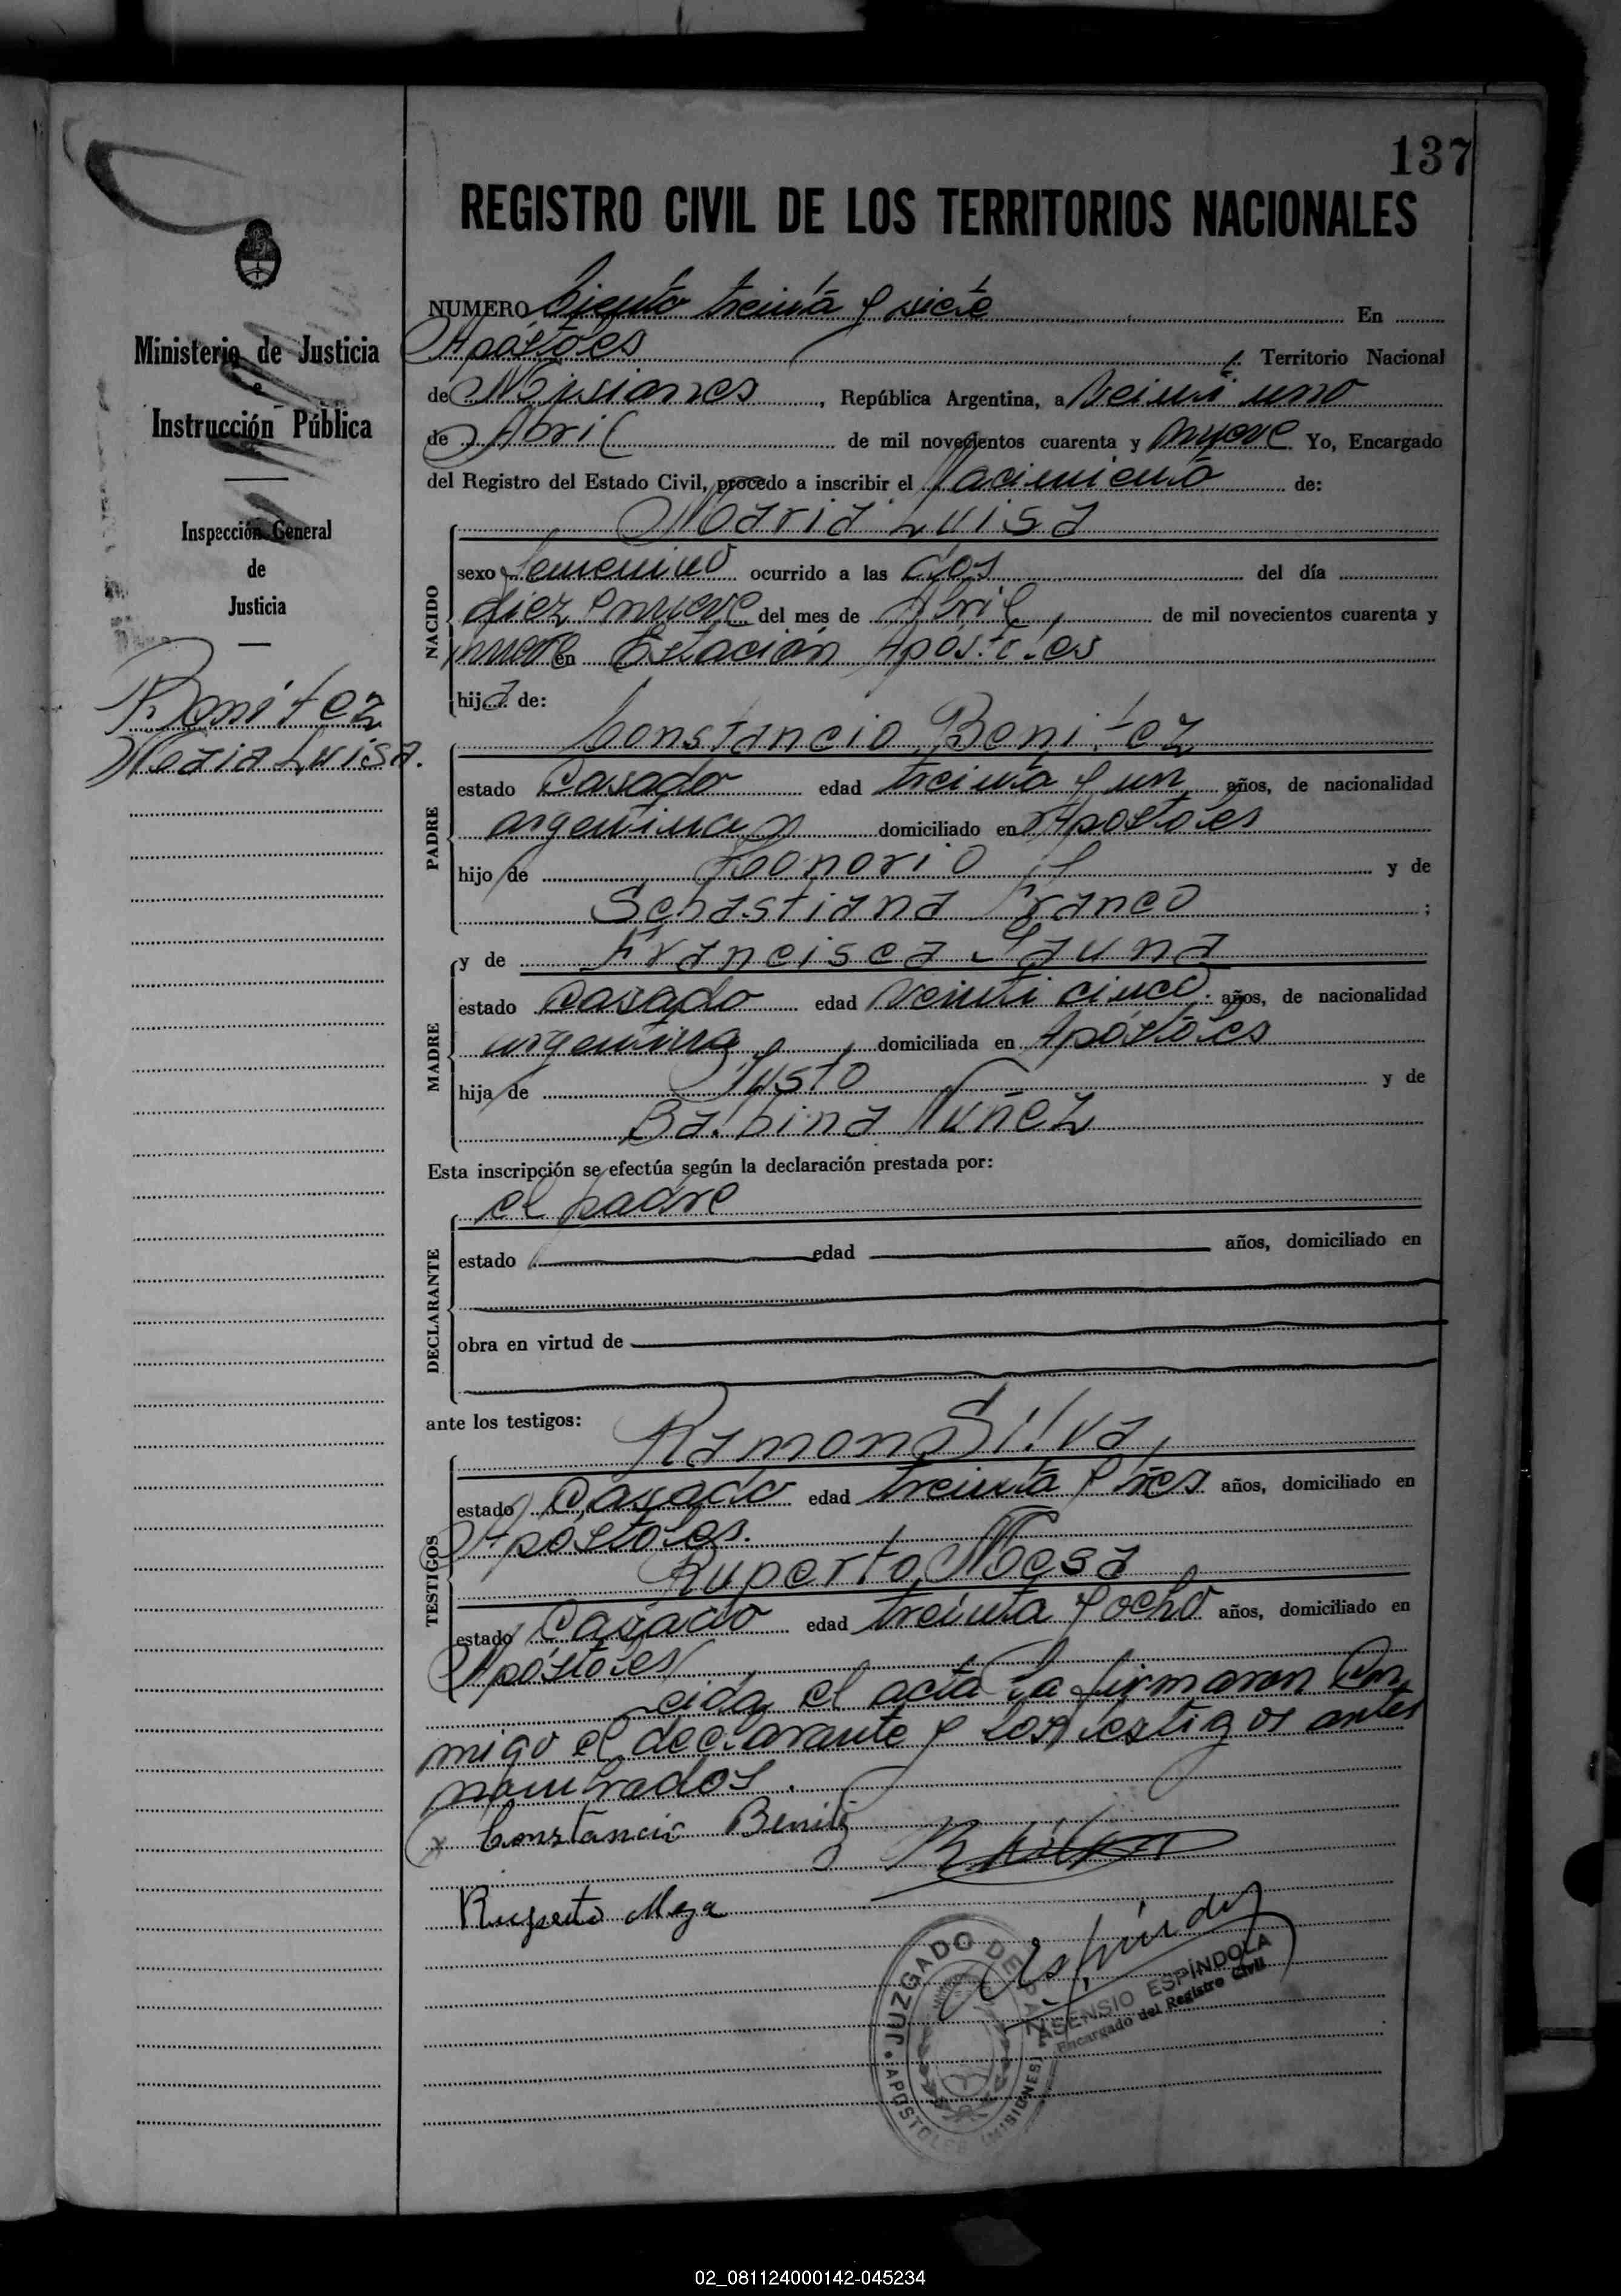 137
REGISTRO CIVIL DE LOS TERRITORIOS NACIONALES
Ministerio de Justicia
e
Instrucción Pública
Inspección General
de
Justicia
Benitez
Maria Luisa.
NUMERO Ciento treinta y siete En
Apóstoles Territorio Nacional
de Misiones, República Argentina, a veinti uno
de Abril de mil novecientos cuarenta y nueve Yo, Encargado
del Registro del Estado Civil, procedo a inscribir el Nacimiento de:
Maria Luisa
NACIDO
sexo femenino ocurrido a las dos del día
diez e nueve del mes de Abril de mil novecientos cuarenta y
nueve en Estación Apóstoles
hija de:
Constancio Benitez
PADRE
estado Casado edad treinta y un años, de nacionalidad
argentina domiciliado en Apóstoles
hijo de Honorio y de
Sebastiana Franco ;
MADRE
y de Francisca Gauna
estado Casado edad veinti cinco años, de nacionalidad
argentina domiciliada en Apóstoles
hija de Justo y de
Balbina Núñez
Esta inscripción se efectúa según la declaración prestada por:
el padre
DECLARANTE
estado edad años, domiciliado en
obra en virtud de
ante los testigos:
Ramon Silva,
TESTIGOS
estado Casado edad treinta y tres años, domiciliado en
Apóstoles.
Ruperto Meza
estado Casado edad treinta y ocho años, domiciliado en
Apóstoles
Leida el acta la firmaron con
migo el declarante y los testigos antes
nombrados.
x Constancio Benitez
Ruperto Meza
JUZGADO DE PAZ
APOSTOLES (MISIONES)
ASENSIO ESPÍNDOLA
Encargado del Registro Civil
02_081124000142-045234